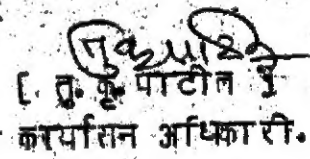 [ तु. कृ. पाटील ]
कार्यासन अधिकारी.